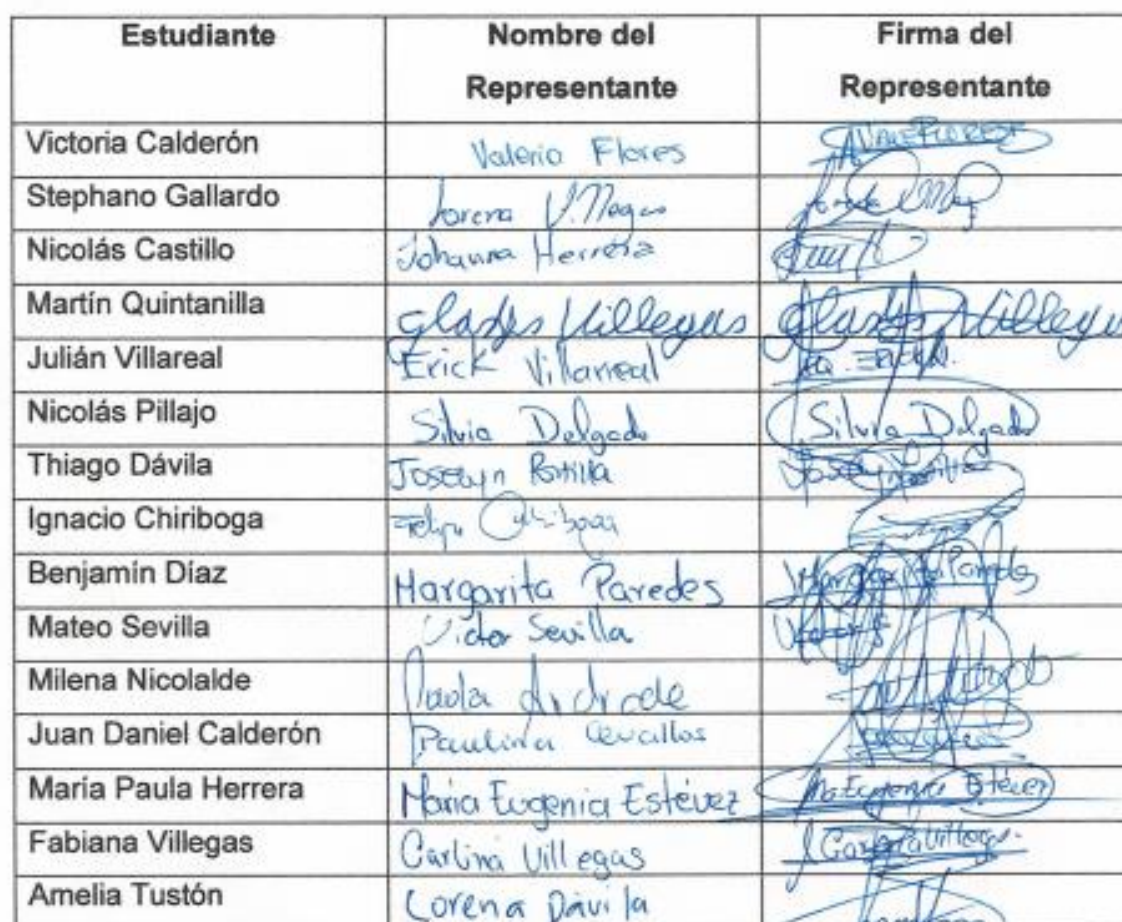 Estudiante Nombre del Representante Firma del Representante
Victoria Calderón Valeria Flores VALE FLORES
Stephano Gallardo Lorena
Nicolás Castillo Johanna Herrera
Martín Quintanilla Gladys Villegas Gladys Villegas
Julián Villareal Erick Villarreal
Nicolás Pillajo Silvia Delgado Silvia Delgado
Thiago Dávila Joselyn
Ignacio Chiriboga Felipe Chiriboga
Benjamín Díaz Margarita Paredes Margarita Paredes
Mateo Sevilla Victor Sevilla
Milena Nicolalde Paola Andrade
Juan Daniel Calderón Paulina Cevallos
María Paula Herrera María Eugenia Estévez Ma Eugenia Estévez
Fabiana Villegas Carlina Villegas
Amelia Tustón Lorena Dávila